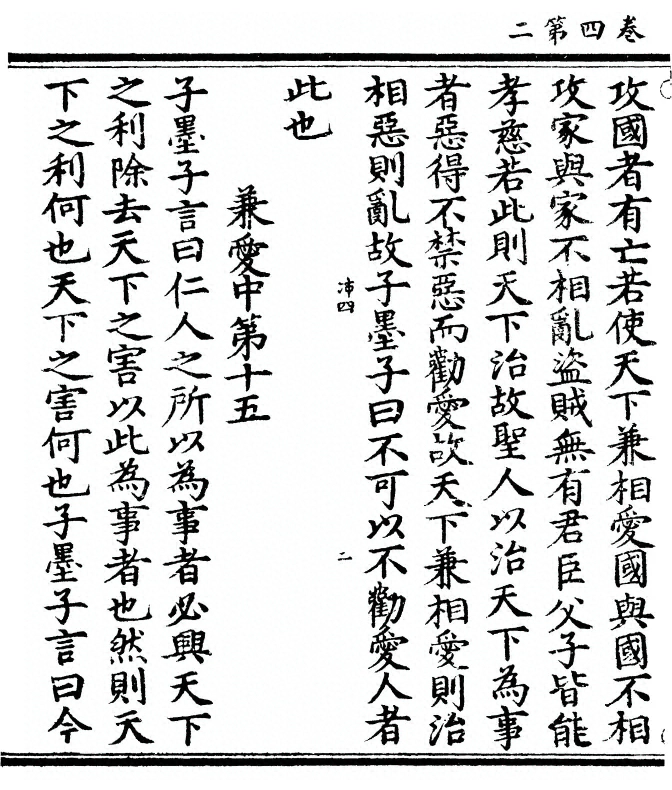 卷四第二
攻國者有亡若使天下兼相愛國與國不相
攻家與家不相亂盜賊無有君臣父子皆能
孝慈若此則天下治故聖人以治天下為事
者惡得不禁惡而勸愛故天下兼相愛則治
相惡則亂故子墨子曰不可以不勸愛人者
沛四
二
此也
兼愛中第十五
子墨子言曰仁人之所以為事者必興天下
之利除去天下之害以此為事者也然則天
下之利何也天下之害何也子墨子言曰今